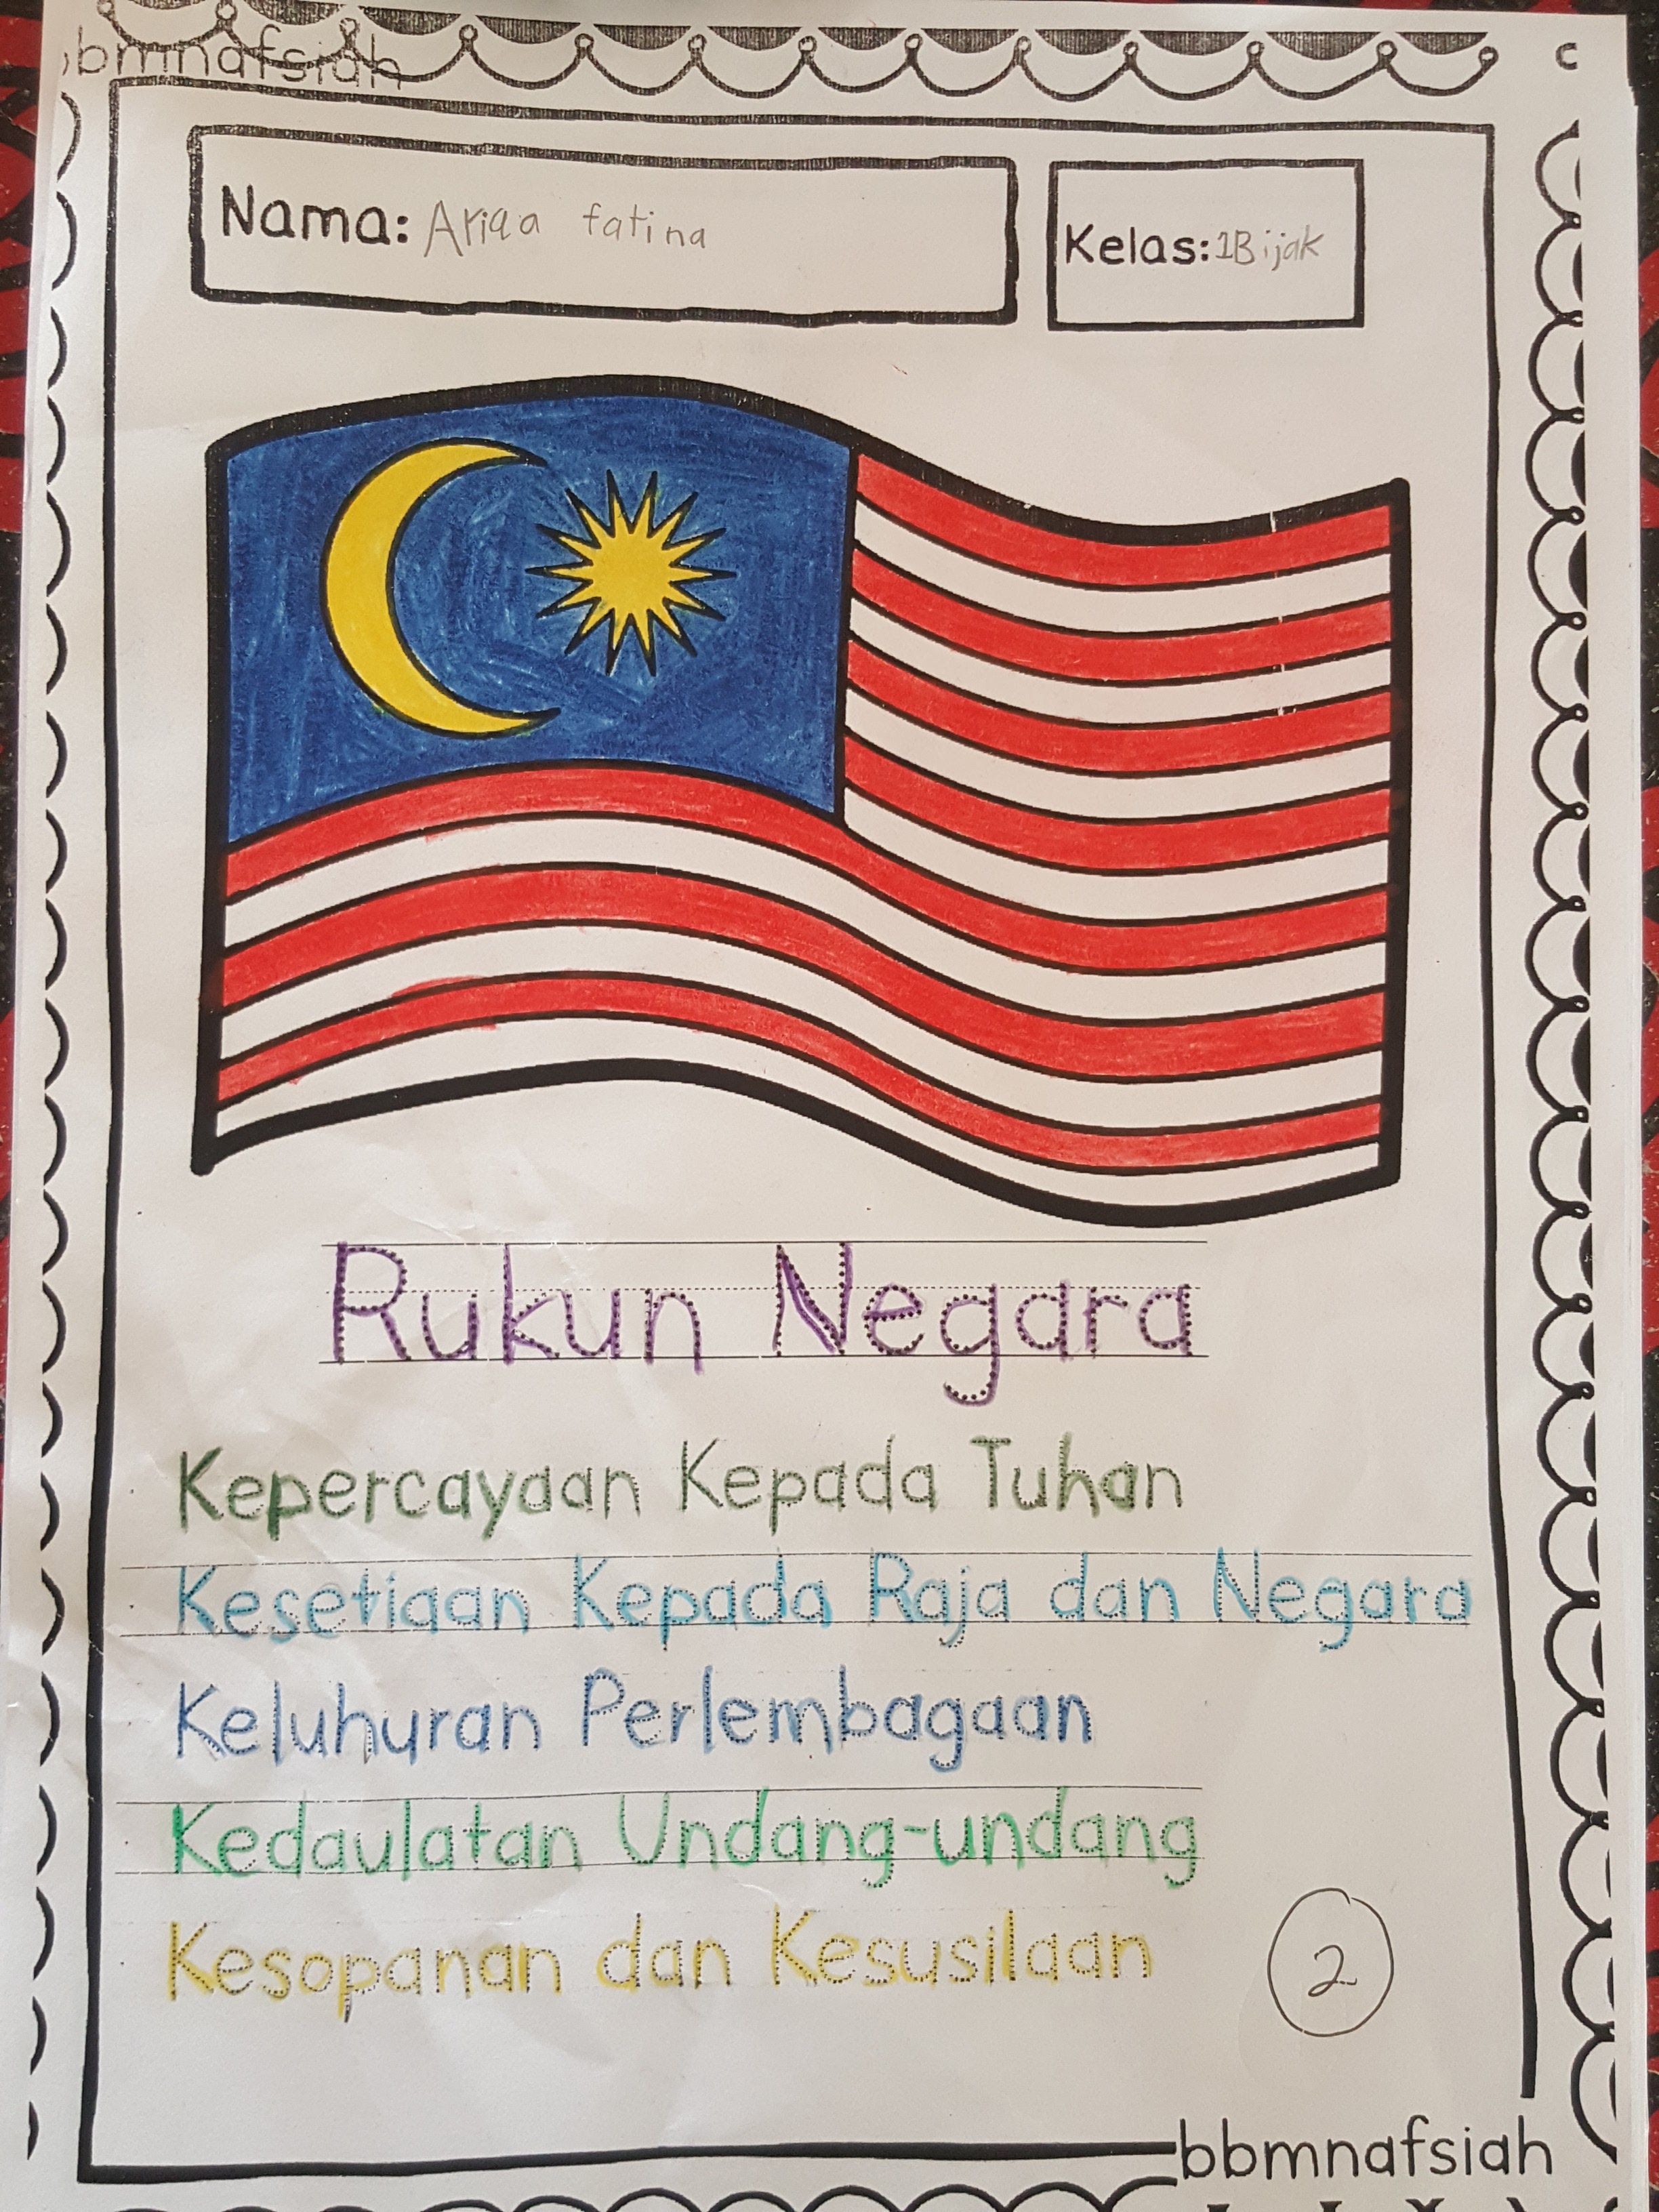 bbmnafsiah
Nama: Ariqa fatina
Kelas: 1Bijak
Rukun Negara
Kepercayaan Kepada Tuhan
Kesetiaan Kepada Raja dan Negara
Keluhuran Perlembagaan
Kedaulatan Undang-undang
Kesopanan dan Kesusilaan
2
bbmnafsiah